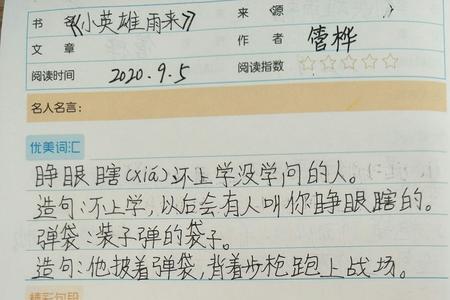 书名 《小英雄雨来》 来源
文章 作者 管桦
阅读时间 2020.9.5 阅读指数 ☆☆☆☆☆
名人名言：
优美词汇
睁眼瞎(xiá):不上学没学问的人。
造句:不上学,以后会有人叫你睁眼瞎的。
弹袋:装子弹的袋子。
造句:他披着弹袋,背着步枪跑上战场。
精彩句段